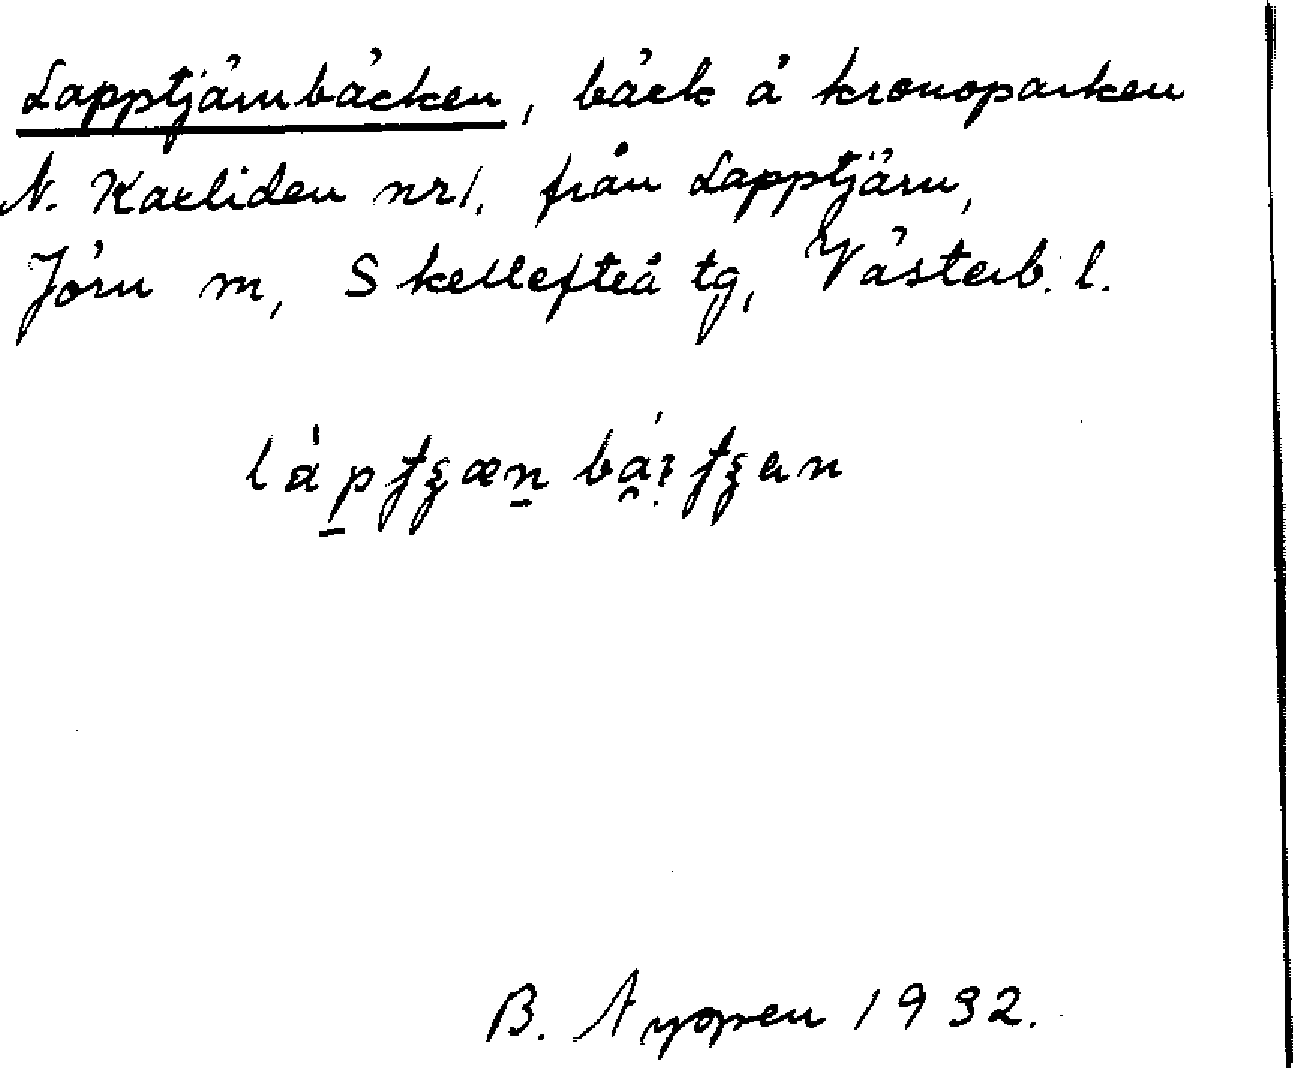 Lapptjärnbäcken, bäck å kronoparken
N. Kaeliden nr 1, från Lapptjärn,
Jörn m, Skellefteå tg, Västerb. l.
B. Nyqren 1932.